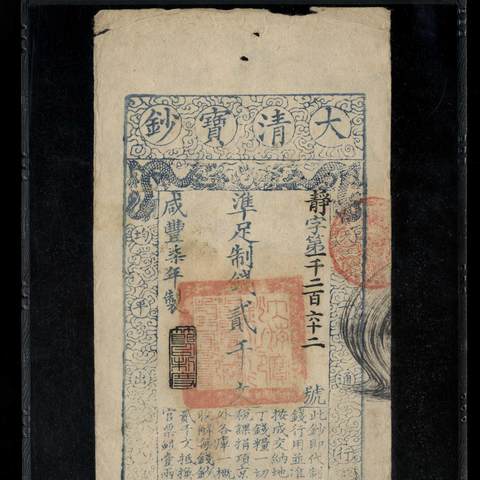 大清寶鈔
通行
靜字第一千二百六十二號
準足制錢貳千文
咸豐柒年製
均平出
此鈔即代制
錢行用並准
按成交納地
丁錢糧一切
稅課捐項京
外各庫一概
收解每錢鈔
貳千文抵換
官票銀壹兩